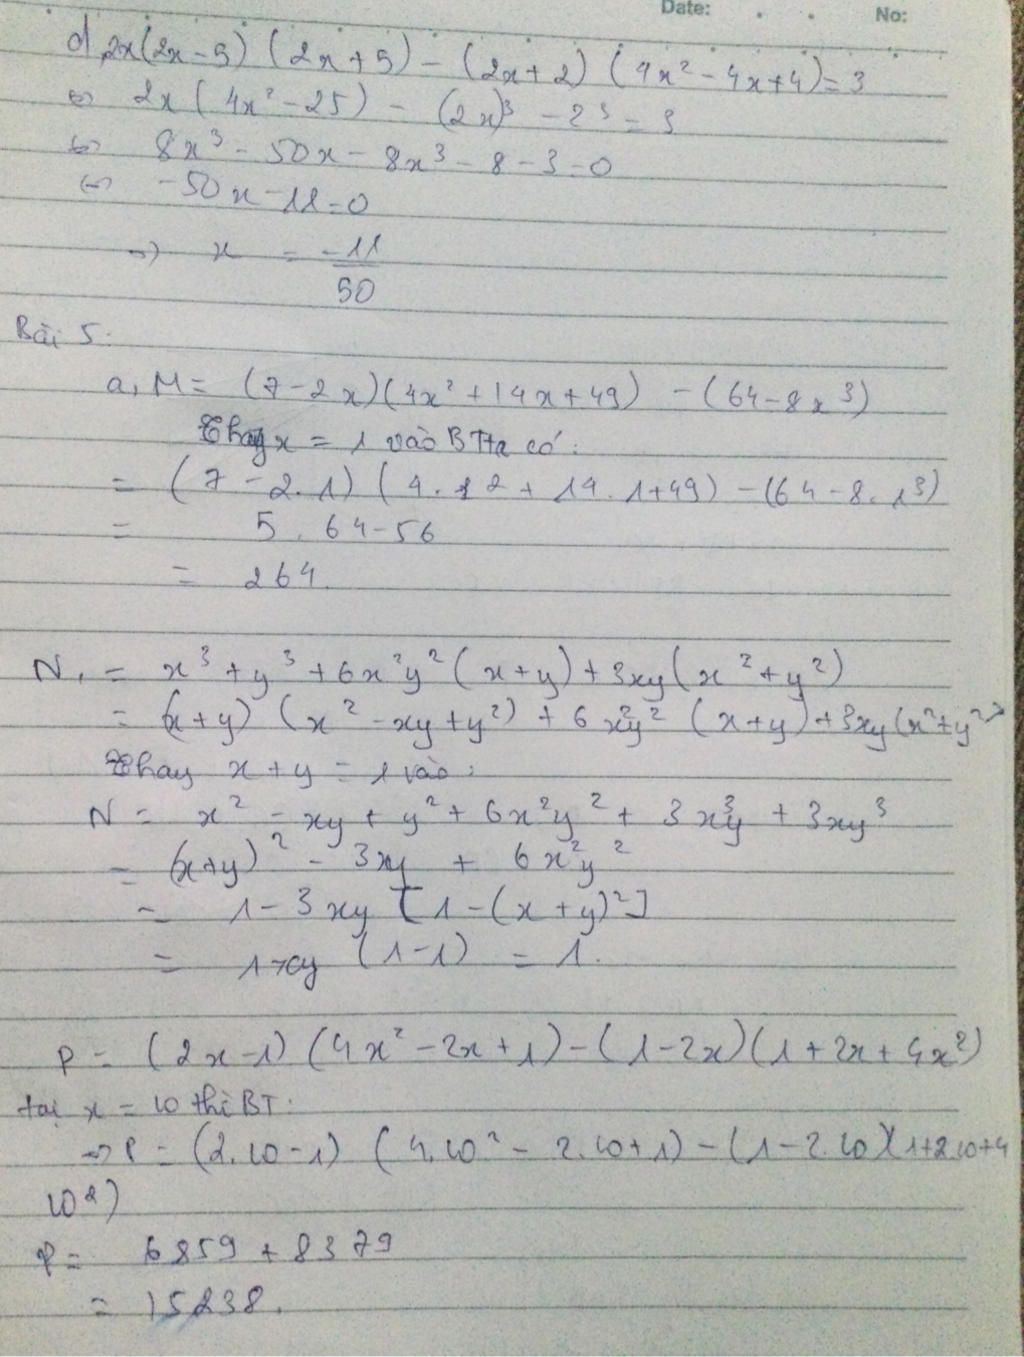 Date: . . No:
d, 2x(2x-5) (2x+5) - (2x+2) (4x² - 4x+4)=3
⇔ 2x( 4x² - 25) - (2x)³ - 2³ = 3
⇔ 8x³ - 50x - 8x³ - 8 - 3 = 0
⇔ -50x - 11 = 0
⇒ x = -11/50
Bài 5:
a, M = (7-2x)(4x² + 14x + 49) - (64-8x³)
Thay x = 1 vào BT ta có:
= (7 - 2.1) (4.1² + 14.1+49) - (64-8.1³)
= 5.64-56
= 264.
N, = x³ + y³ + 6x²y² (x+y) + 3xy(x² + y²)
= (x+y) (x² - xy + y²) + 6x²y² (x+y) + 3xy(x²+y²)
Thay x+y = 1 vào:
N = x² - xy + y² + 6x²y² + 3x³y + 3xy³
= (x+y)² - 3xy + 6x²y²
= 1 - 3xy [1 - (x+y)²]
= 1-xy (1-1) = 1.
P = (2x-1) (4x² - 2x + 1) - (1-2x)(1 + 2x + 4x²)
tại x = 10 thì BT:
⇒ P = (2.10-1) (4.10² - 2.10+1) - (1-2.10)(1+2.10+4
10²)
P = 6859 + 8379
= 15238.